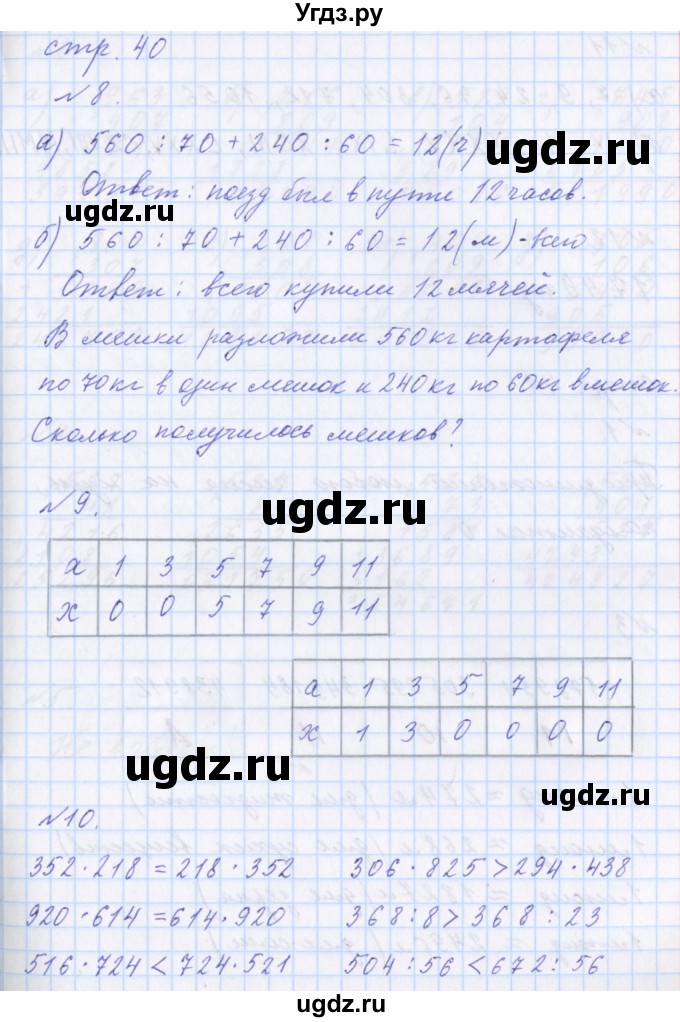 Угдз.ру
стр. 40
№8.
а) 560 : 70 + 240 : 60 = 12(ч)
ugdz.ru
Ответ: поезд был в пути 12 часов.
ugdz.ru
б) 560 : 70 + 240 : 60 = 12(м) - всего
Ответ: всего купили 12 мячей.
ugdz.ru
В мешки разложили 560 кг картофеля
по 70 кг в один мешок и 240 кг по 60 кг в мешок.
Сколько получилось мешков?
№9.
ugdz.ru
ugdz.ru
а 1 3 5 7 9 11
х 0 0 5 7 9 11
а 1 3 5 7 9 11
х 1 3 0 0 0 0
ugdz.ru
ugdz.ru
№10.
352 · 218 = 218 · 352 306 · 825 > 294 · 438
920 · 614 = 614 · 920 368 : 8 > 368 : 23
516 · 724 < 724 · 521 504 : 56 < 672 : 56
ugdz.ru